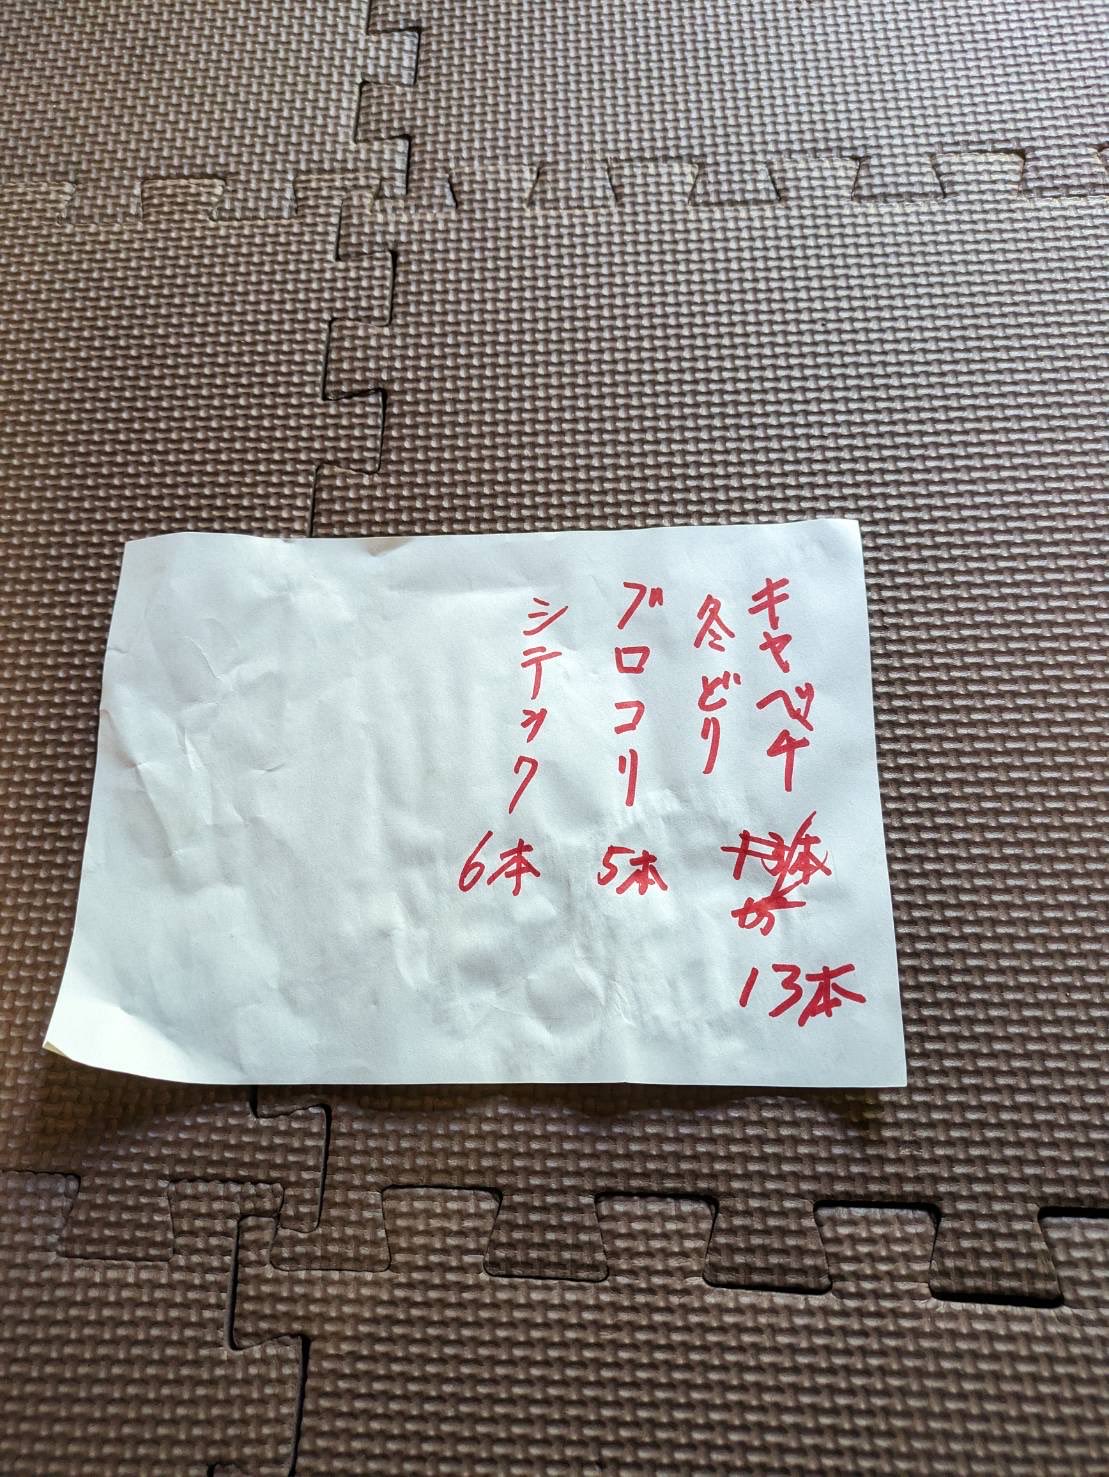 キャベッチ
13本
冬どり
ブロコリ 5本
シテック 6本